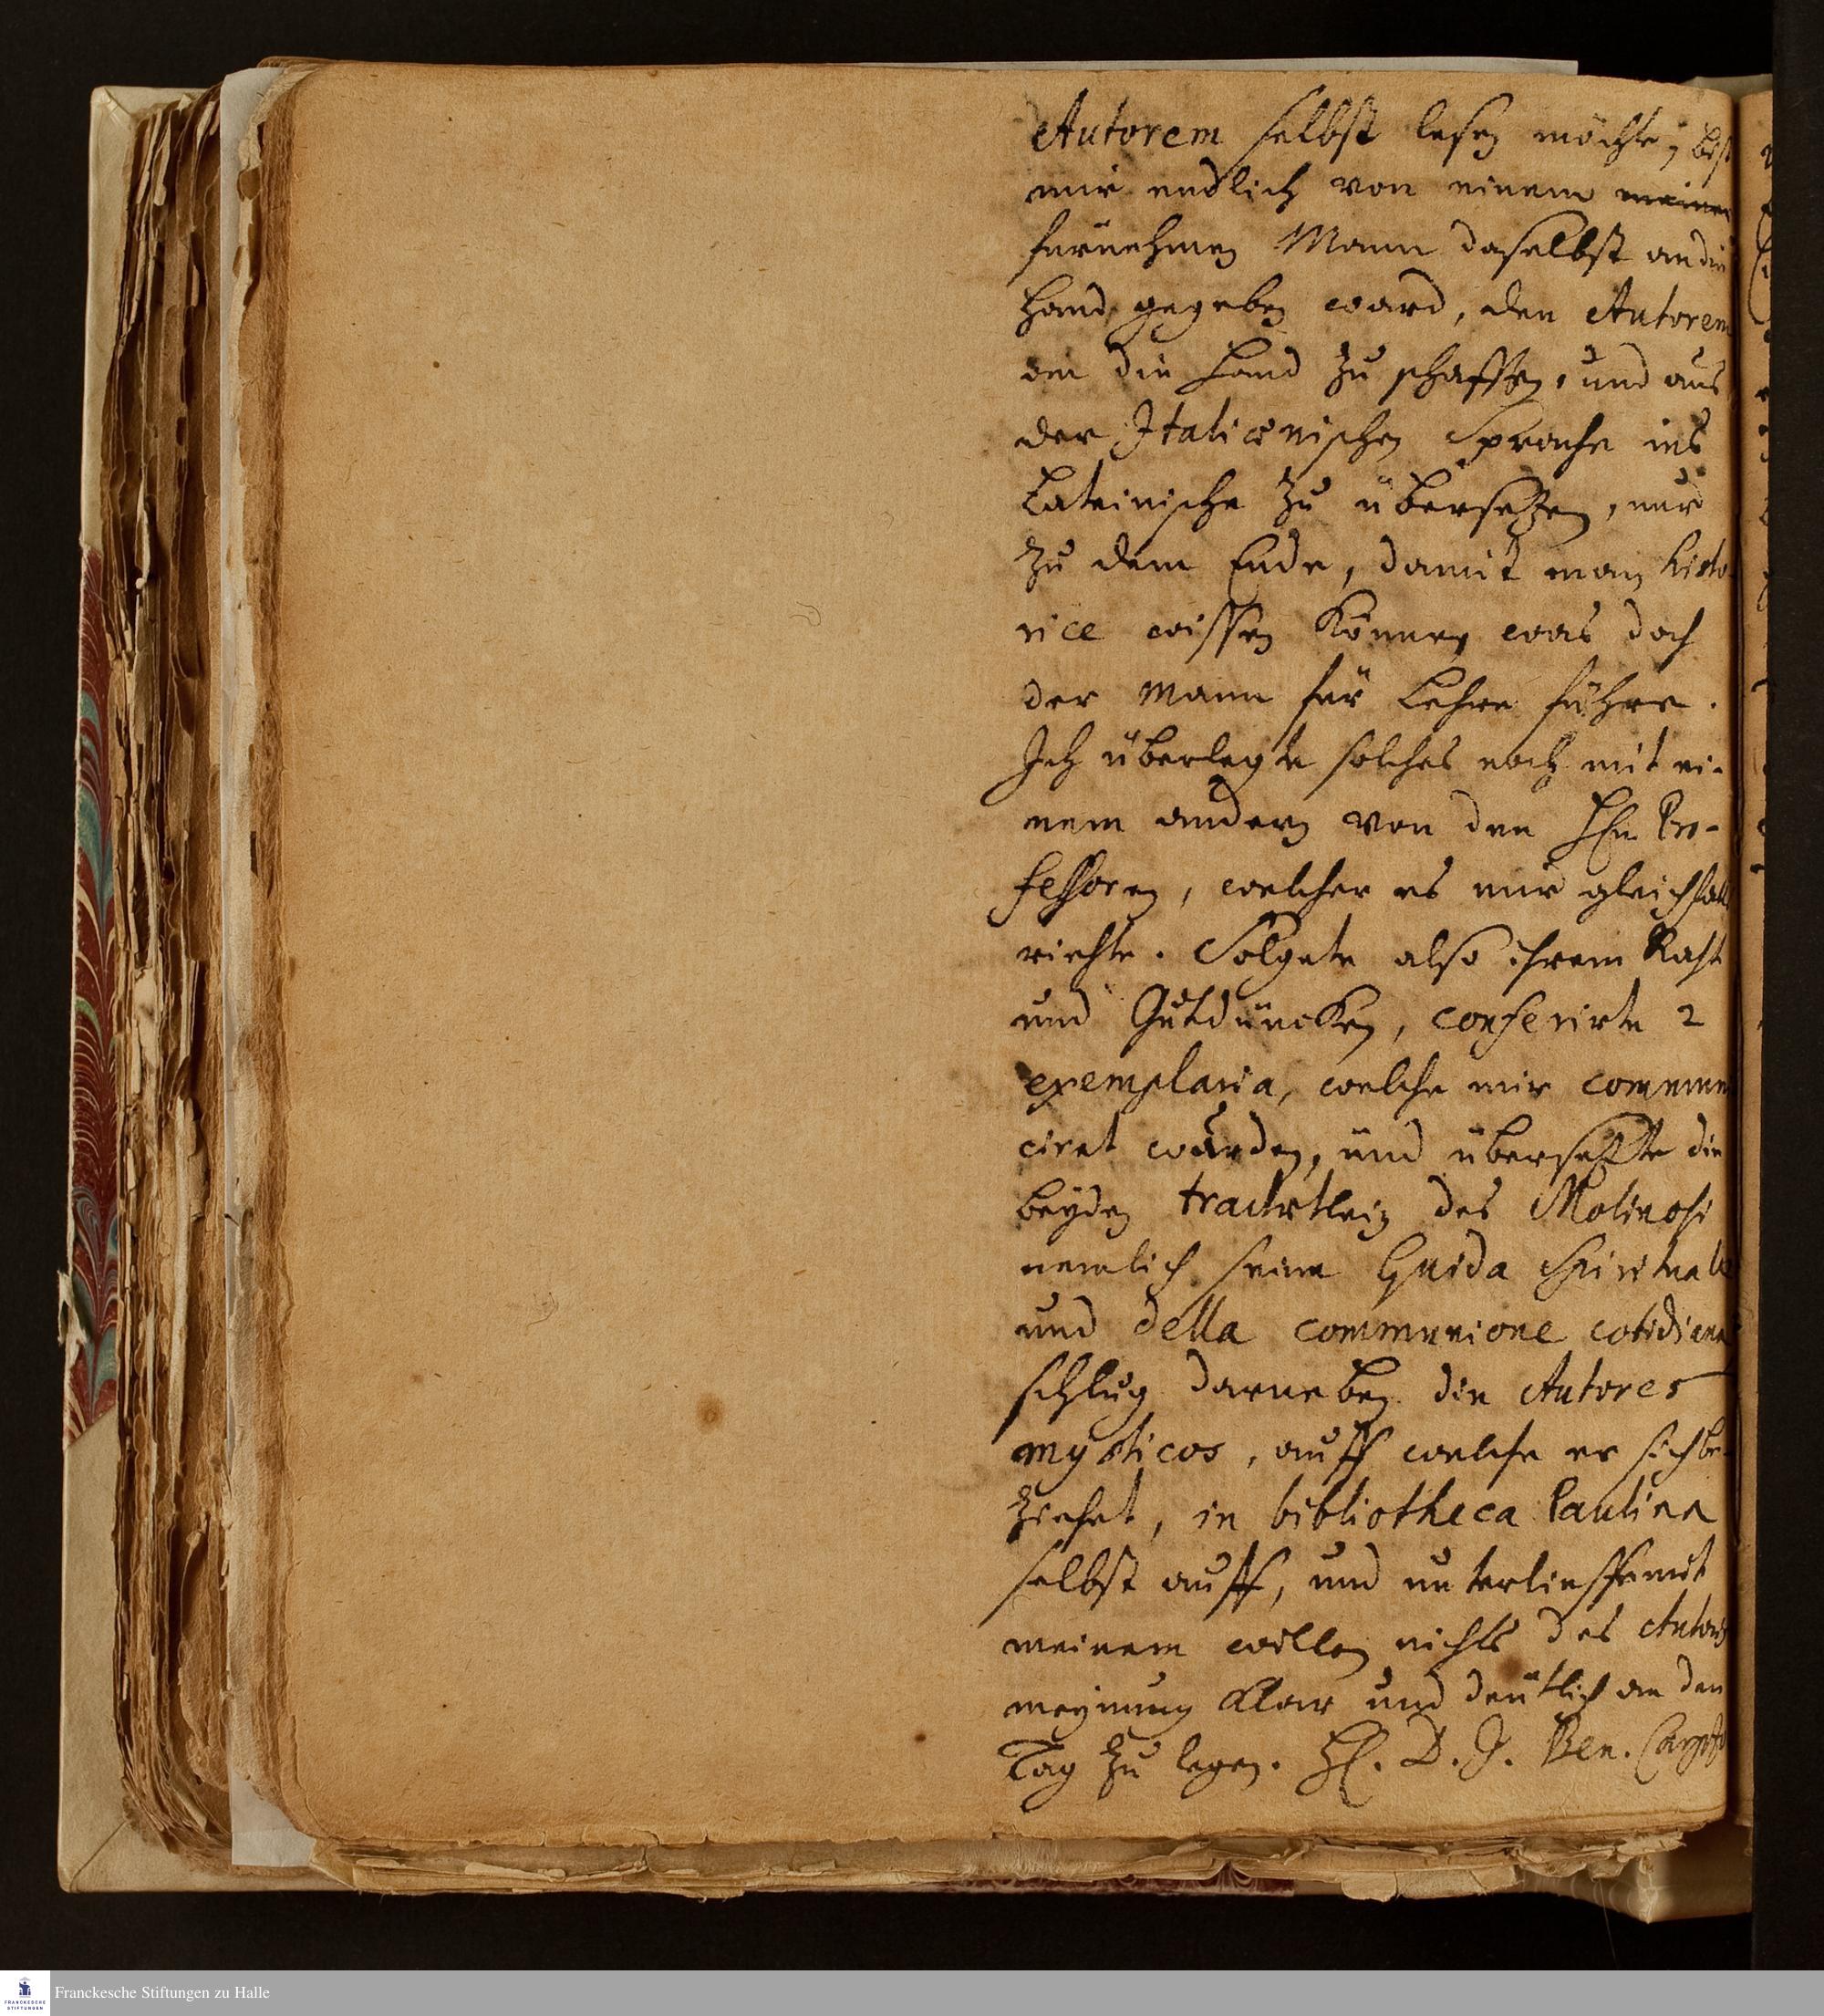 Autorem selbst lesen möchte, biß
mir endlich von einem meinen
fürnehmen Mann daselbst an die
Hand gegeben ward, den Autorem
an die Hand zu schaffen, und aus
der Italiænischen Sprache ins
Lateinische zu übersetzen, nur
zu dem Ende, damit man histo-
rice wissen könne, was doch
der Mann für Lehre führe.
Ich überlegte solches noch mit ei-
nem andern von den HEn Pro-
fessoren, welcher es mir gleichfalls
riethe. Folgete also ihrem Raht
und Gutdüncken, conferirte 2
exemplaria, welche mir communi
ciret wurden, und übersetzte die
beyden tractätlein des Molinosi
nemlich seine Guida Spirituale
und della communione cotidiana
schlug darneben die Autores
mysticos, auff welche er sich be-
ziehet, in bibliotheca Paulina
selbst auff, und unterliesse mit
meinem willen nichts des Autoris
meynung klar und deutlich an den
Tag zu legen. HE. D. J. Ben. Carpzo
Franckesche Stiftungen zu Halle
FRANCKESCHE
STIFTUNGEN